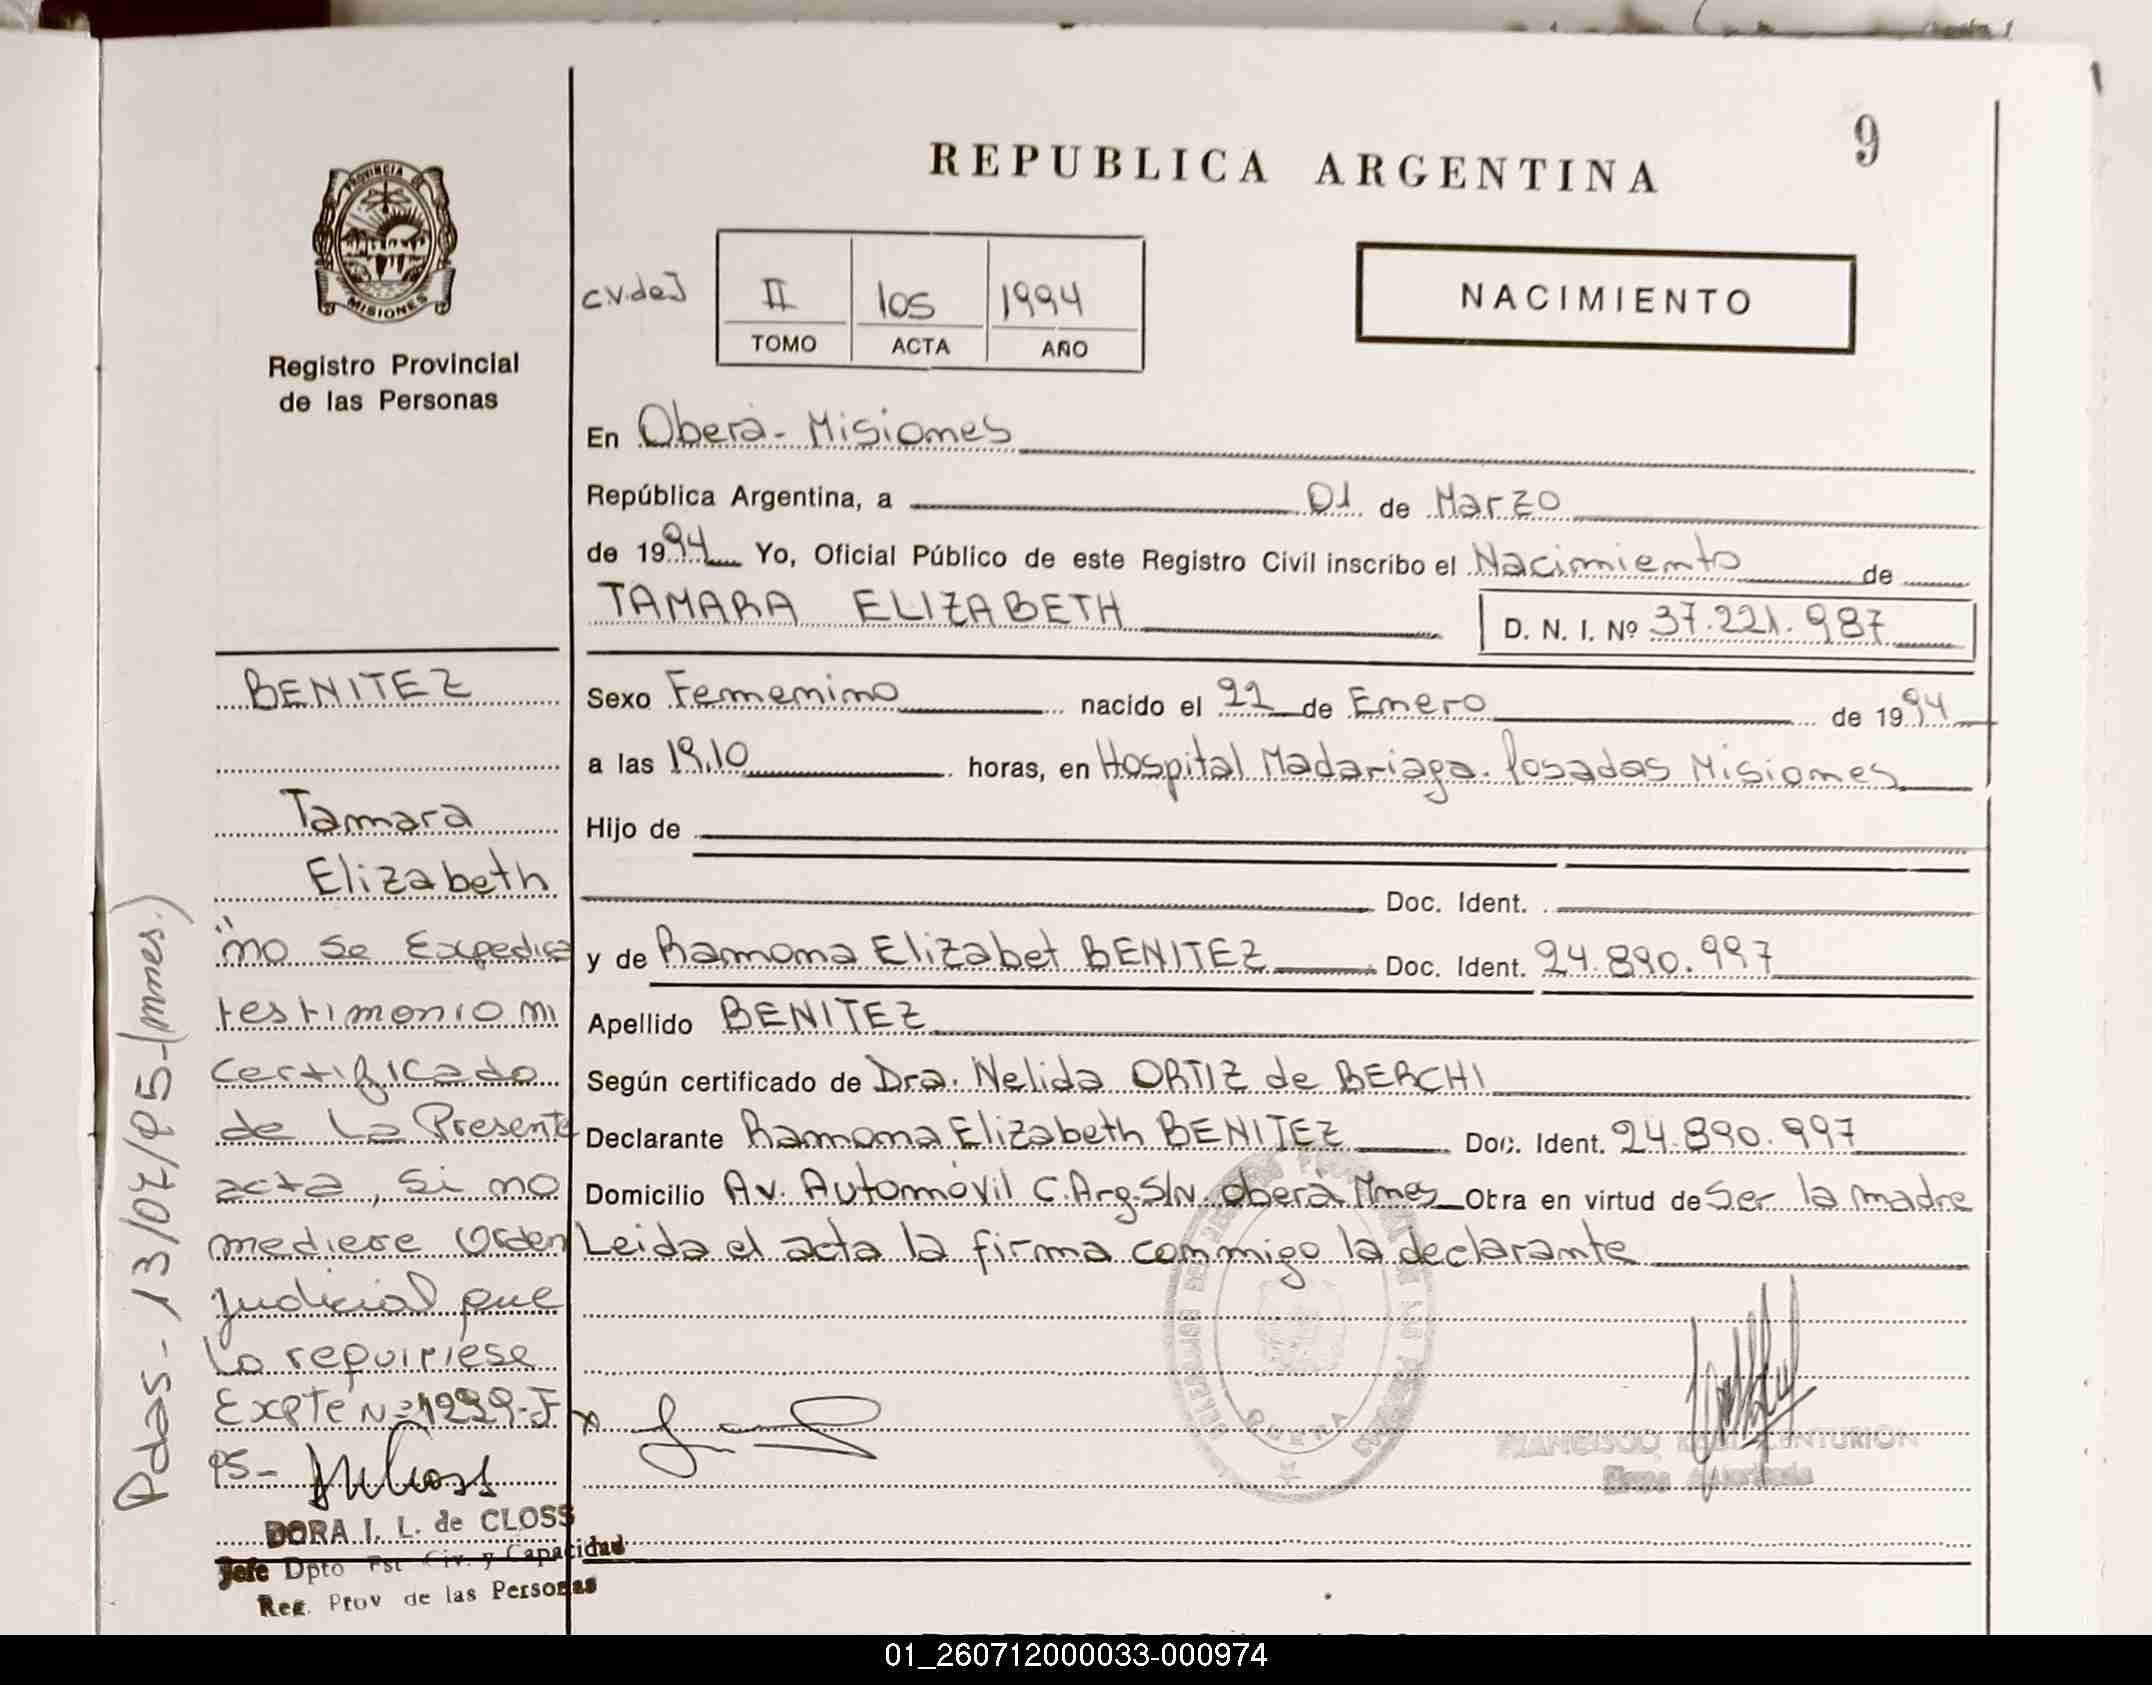 REPUBLICA ARGENTINA
9
PROVINCIA DE
MISIONES
Registro Provincial
de las Personas
C.V.deJ
II 105 1994
TOMO ACTA AÑO
NACIMIENTO
En Oberá - Misiones
República Argentina, a 01 de Marzo
de 1994 Yo, Oficial Público de este Registro Civil inscribo el Nacimiento de
TAMARA ELIZABETH
D. N. I. Nº 37.221.987
Sexo Femenino nacido el 22 de Enero de 1994
a las 19,10 horas, en Hospital Madariaga. Posadas Misiones
Hijo de
Doc. Ident.
y de Ramona Elizabet BENITEZ Doc. Ident. 24.890.997
Apellido BENITEZ
Según certificado de Dra. Nelida ORTIZ de BERCHI
Declarante Ramona Elizabeth BENITEZ Doc. Ident. 24.890.997
Domicilio Av. Automóvil C.Arg.S/N. Oberá Mnes Obra en virtud de Ser la madre
Leida el acta la firma conmigo la declarante
BENITEZ
Tamara
Elizabeth
"no se Expedira
testimonio ni
certificado
de La Presente
acta, Si no
mediere Orden
judicial que
Lo requiriese
Expte Nº 1229-J
95-
DORA I. L. de CLOSS
Jefe Dpto Est Civ. y Capacidad
Reg. Prov de las Personas
Pdas - 13/07/95-(mnes.)
FRANCISCO CENTURION
Firma Autorizada
01_260712000033-000974